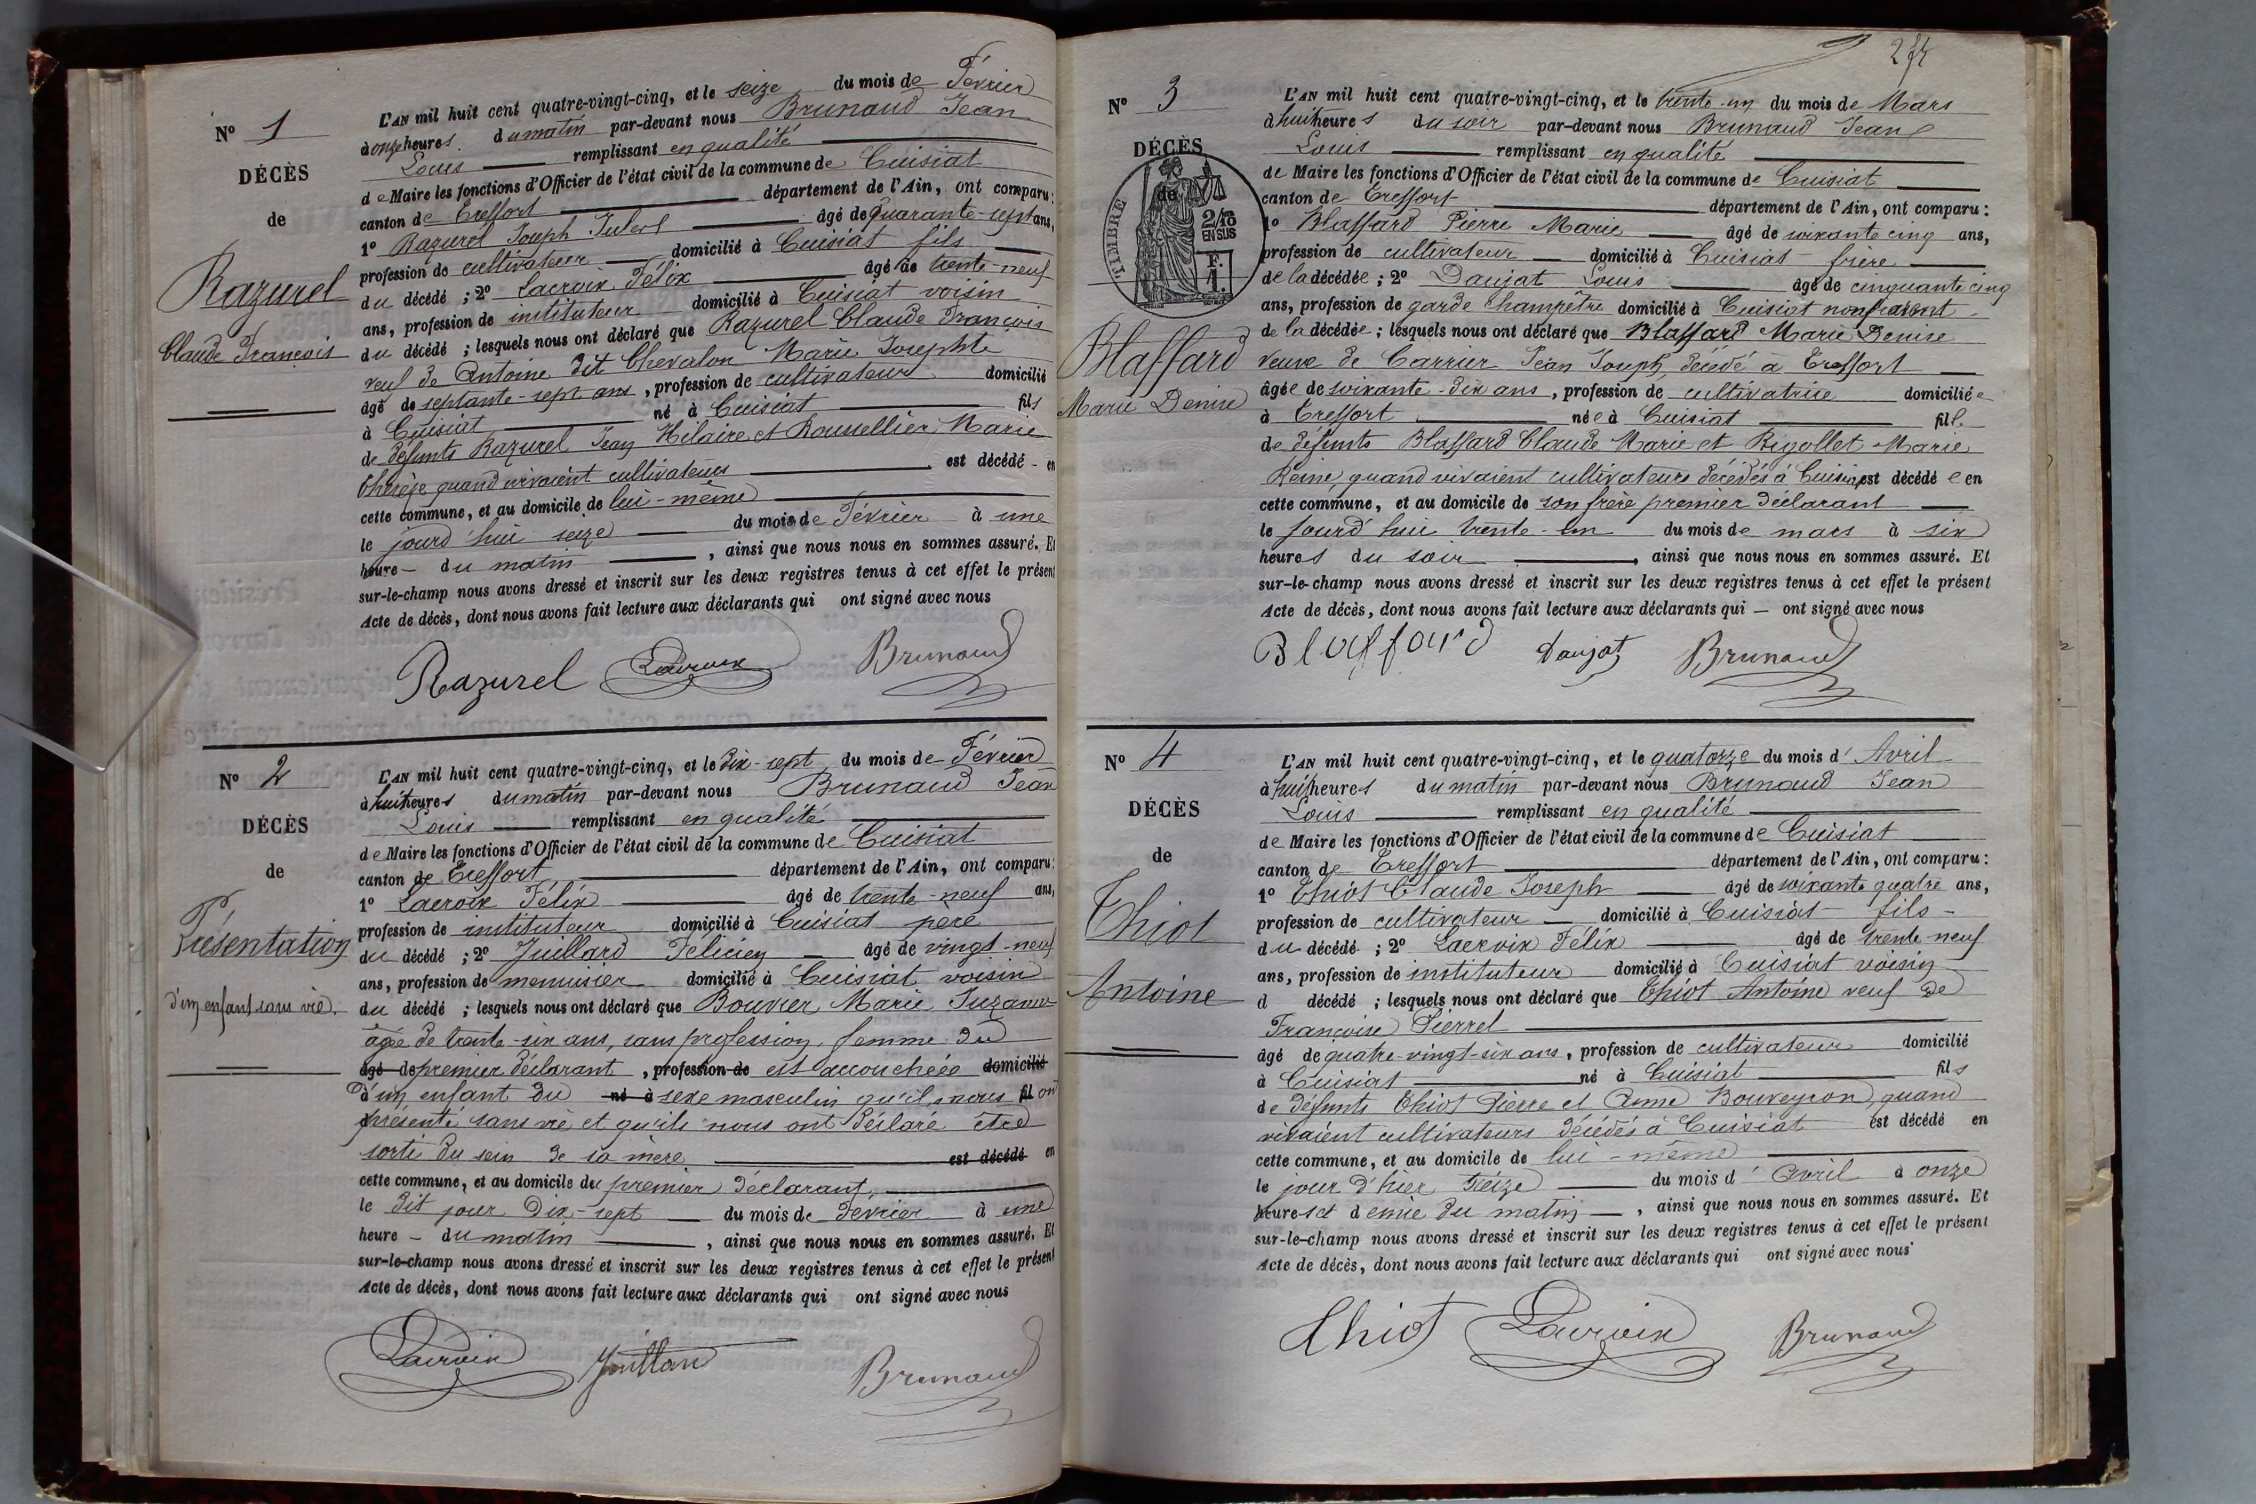 N° 1
DÉCÈS
de
Razurel
Claude François
L'AN mil huit cent quatre-vingt-cinq, et le seize du mois de Février
à onze heures du matin par-devant nous Brunaud Jean
Louis remplissant en qualité
de Maire les fonctions d'Officier de l'état civil de la commune de Cuisiat
canton de Treffort département de l'Ain, ont comparu :
1° Razurel Joseph Jules âgé de Quarante-sept ans,
profession de cultivateur domicilié à Cuisiat fils
du décédé ; 2° Lacroix Félix âgé de trente-neuf
ans, profession de instituteur domicilié à Cuisiat voisin
du décédé ; lesquels nous ont déclaré que Razurel Claude François
veuf de Antoine dit Chevalon Marie Josephte
âgé de septante-sept ans, profession de cultivateur domicilié
à Cuisiat né à Cuisiat fils
de défunts Razurel Jean Hilaire et Roussellier Marie
Thérèse quand vivaient cultivateurs est décédé en
cette commune, et au domicile de lui-même
le jourd'hui seize du mois de Février à une
heure du matin, ainsi que nous nous en sommes assuré. Et
sur-le-champ nous avons dressé et inscrit sur les deux registres tenus à cet effet le présent
Acte de décès, dont nous avons fait lecture aux déclarants qui ont signé avec nous
Razurel Lacroix Brunaud
N° 2
DÉCÈS
de
Présentation
d'un enfant sans vie.
L'AN mil huit cent quatre-vingt-cinq, et le Dix-sept du mois de Février
à huit heures du matin par-devant nous Brunaud Jean
Louis remplissant en qualité
de Maire les fonctions d'Officier de l'état civil de la commune de Cuisiat
canton de Treffort département de l'Ain, ont comparu :
1° Lacroix Félix âgé de trente-neuf ans,
profession de instituteur domicilié à Cuisiat père
du décédé ; 2° Juillard Félicien âgé de vingt-neuf
ans, profession de menuisier domicilié à Cuisiat voisin
du décédé ; lesquels nous ont déclaré que Bouvier Marie Suzanne
âgée de trente-six ans, sans profession, femme du
âgé de premier déclarant, profession de est accouchée domicilié
d'un enfant du né à sexe masculin qu'il nous fil ont
présenté sans vie et qu'ils nous ont déclaré être
sorti du sein de sa mère est décédé en
cette commune, et au domicile du premier déclarant,
le dit jour Dix-sept du mois de Février à une
heure du matin, ainsi que nous nous en sommes assuré. Et
sur-le-champ nous avons dressé et inscrit sur les deux registres tenus à cet effet le présent
Acte de décès, dont nous avons fait lecture aux déclarants qui ont signé avec nous
Lacroix Juillard Brunaud
N° 3
DÉCÈS
de
TIMBRE
2/10
EN SUS
F.
1.
Blaffard
Marie Denise
L'AN mil huit cent quatre-vingt-cinq, et le trente-un du mois de Mars
à huit heures du soir par-devant nous Brunaud Jean
Louis remplissant en qualité
de Maire les fonctions d'Officier de l'état civil de la commune de Cuisiat
canton de Treffort département de l'Ain, ont comparu :
1° Blaffard Pierre Marie âgé de soixante cinq ans,
profession de cultivateur domicilié à Cuisiat frère
de la décédée ; 2° Daujat Louis âgé de cinquante cinq
ans, profession de garde champêtre domicilié à Cuisiat non parent
de la décédée ; lesquels nous ont déclaré que Blaffard Marie Denise
veuve de Carrier Jean Joseph décédé à Treffort
âgée de soixante-dix ans, profession de cultivatrice domiciliée
à Treffort née à Cuisiat fille
de défunts Blaffard Claude Marie et Rigollet Marie
Reine quand vivaient cultivateurs décédés à Cuisiat est décédée en
cette commune, et au domicile de son frère premier déclarant
le jourd'hui trente-un du mois de mars à six
heures du soir, ainsi que nous nous en sommes assuré. Et
sur-le-champ nous avons dressé et inscrit sur les deux registres tenus à cet effet le présent
Acte de décès, dont nous avons fait lecture aux déclarants qui — ont signé avec nous
Blaffard Daujat Brunaud
N° 4
DÉCÈS
de
Thiot
Antoine
L'AN mil huit cent quatre-vingt-cinq, et le quatorze du mois d'Avril
à huit heures du matin par-devant nous Brunaud Jean
Louis remplissant en qualité
de Maire les fonctions d'Officier de l'état civil de la commune de Cuisiat
canton de Treffort département de l'Ain, ont comparu :
1° Thiot Claude Joseph âgé de soixante quatre ans,
profession de cultivateur domicilié à Cuisiat fils
du décédé ; 2° Lacroix Félix âgé de trente-neuf
ans, profession de instituteur domicilié à Cuisiat voisin
d décédé ; lesquels nous ont déclaré que Thiot Antoine veuf de
Françoise Pierrel
âgé de quatre-vingt-six ans, profession de cultivateur domicilié
à Cuisiat né à Cuisiat fils
de défunts Thiot Pierre et Anne Bouveyron, quand
vivaient cultivateurs décédés à Cuisiat est décédé en
cette commune, et au domicile de lui-même
le jour d'hier Treize du mois d'Avril à onze
heures et demie du matin, ainsi que nous nous en sommes assuré. Et
sur-le-champ nous avons dressé et inscrit sur les deux registres tenus à cet effet le présent
Acte de décès, dont nous avons fait lecture aux déclarants qui ont signé avec nous
Thiot Lacroix Brunaud